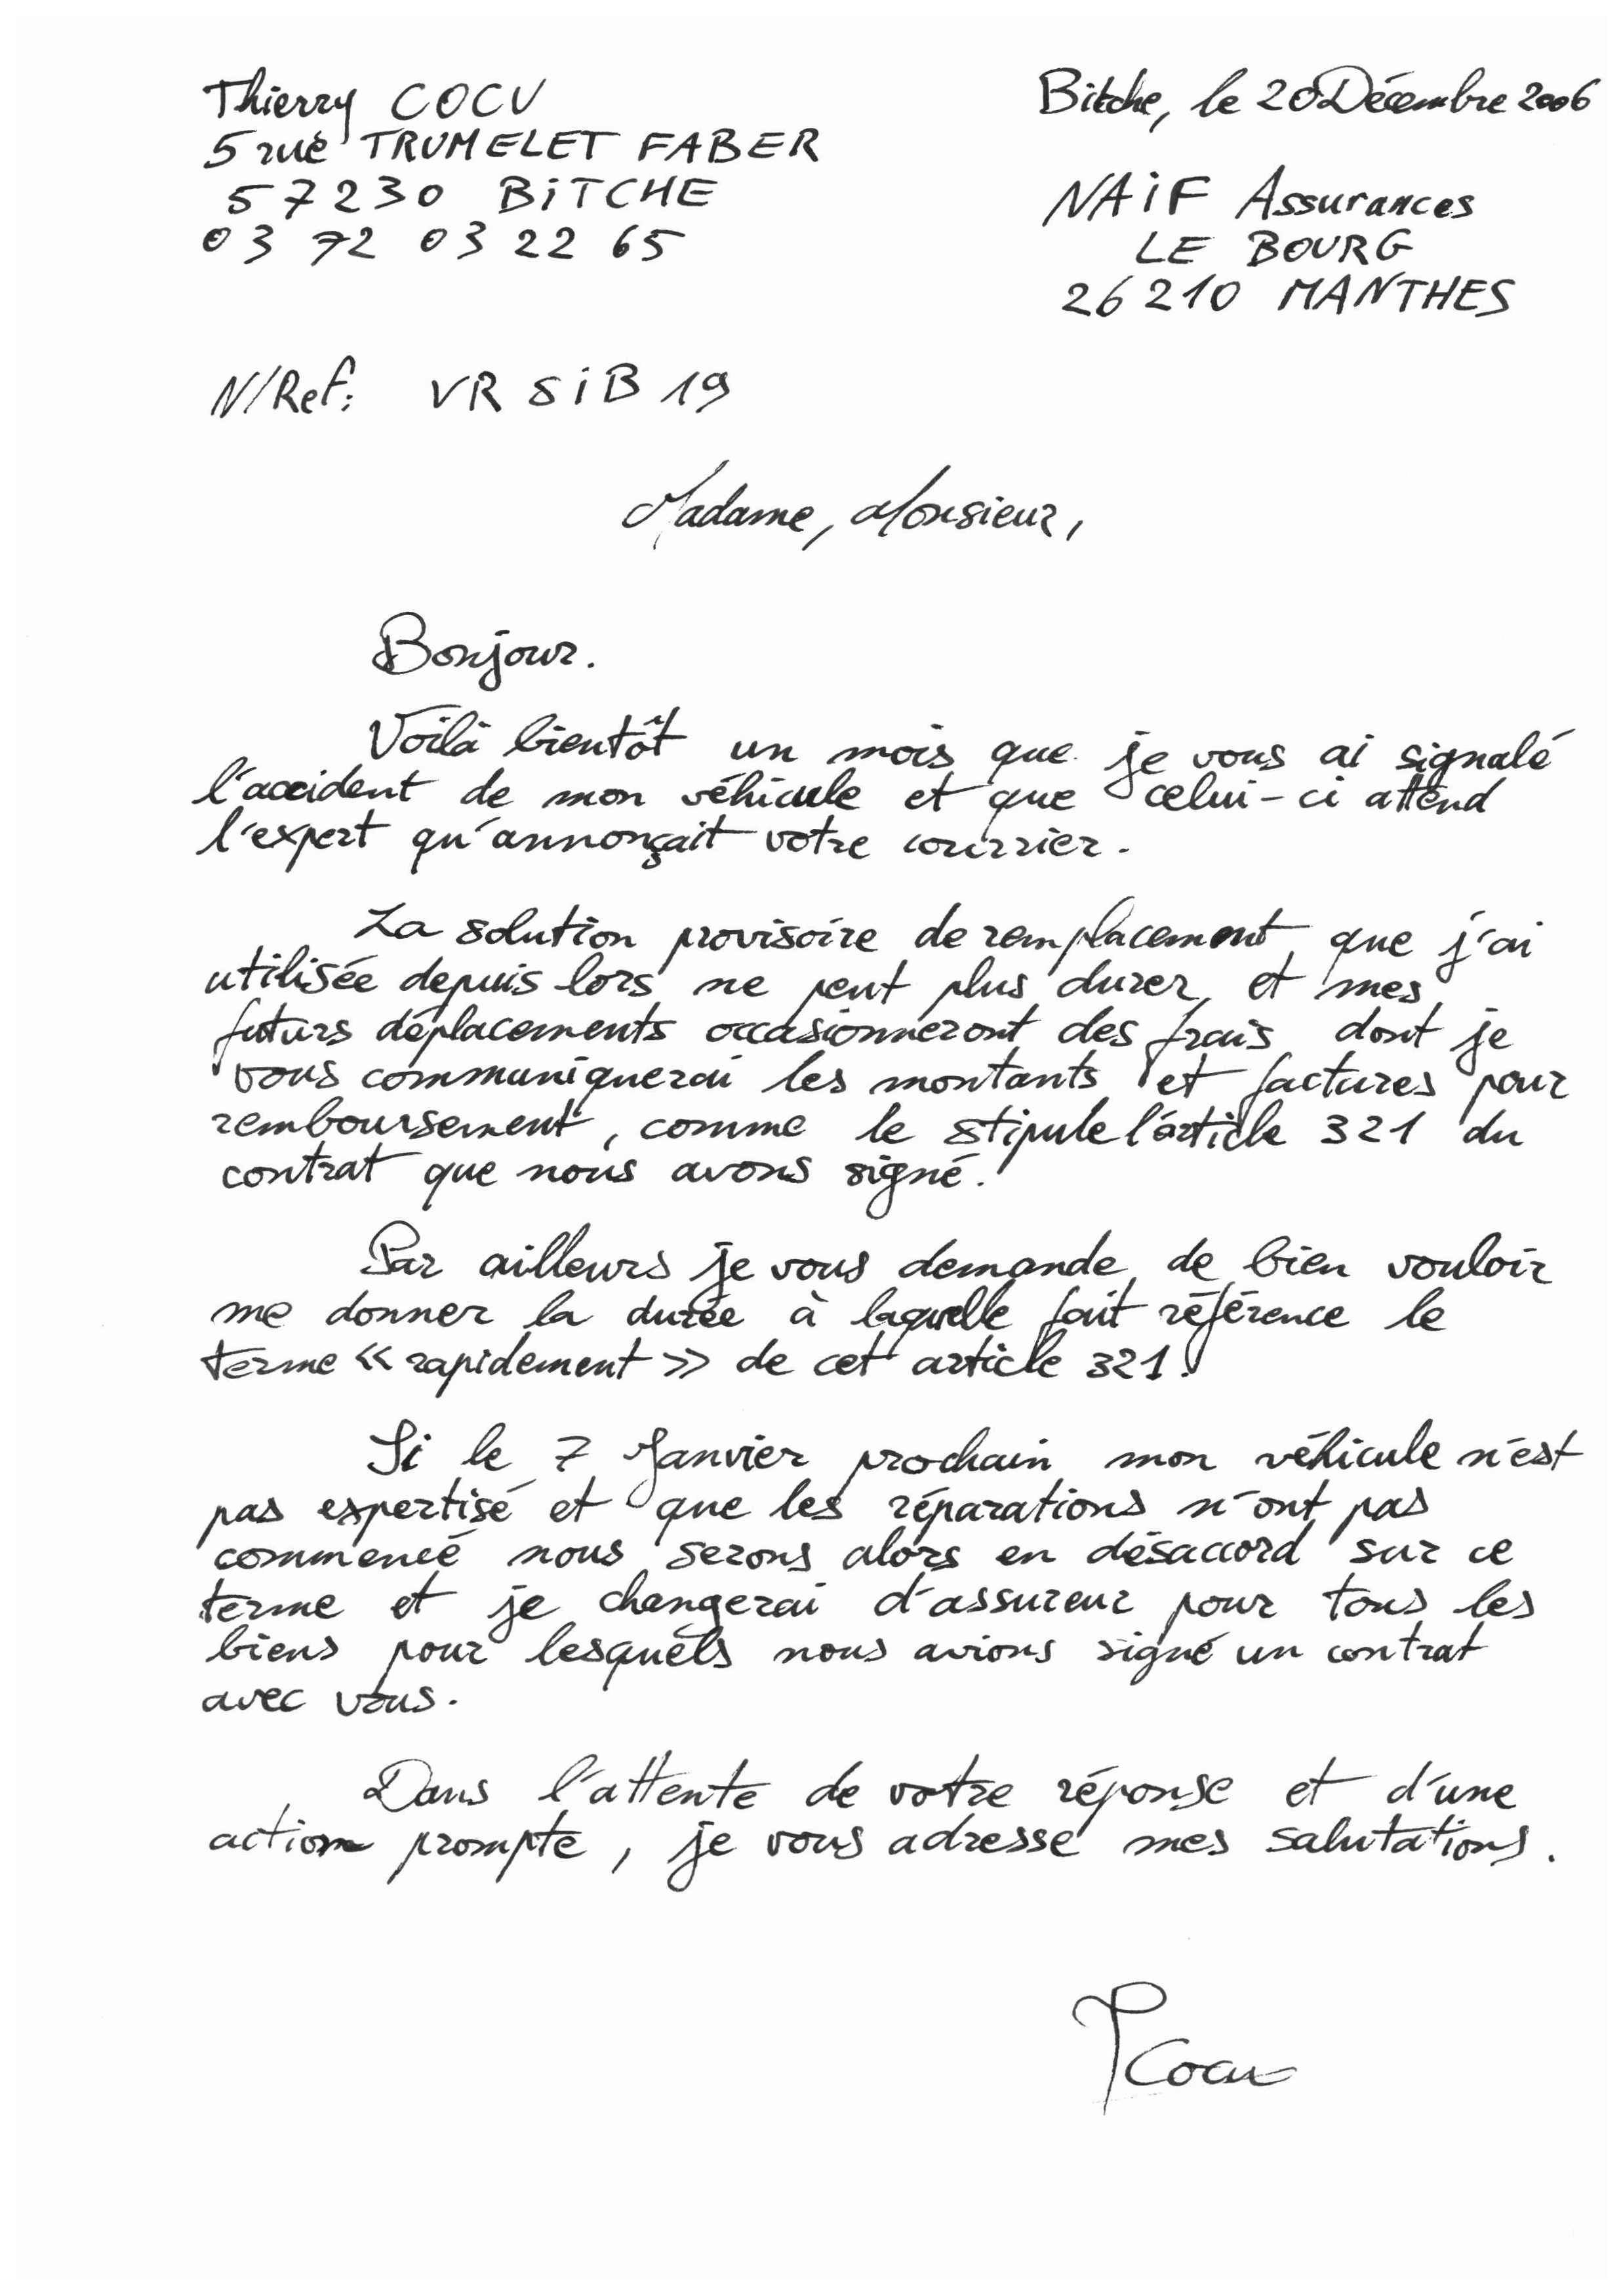 Thierry COCU
5 rue TRUMELET FABER
57230 BITCHE
03 72 03 22 65
Bitche, le 20 Décembre 2006
NAIF Assurances
LE BOURG
26210 MANTHES
N/Ref: VR SIB 19
Madame, Monsieur,
Bonjour.
Voilà bientôt un mois que je vous ai signalé
l'accident de mon véhicule et que celui-ci attend
l'expert qu'annonçait votre courrier.
La solution provisoire de remplacement que j'ai
utilisée depuis lors ne peut plus durer, et mes
futurs déplacements occasionneront des frais dont je
vous communiquerai les montants et factures pour
remboursement, comme le stipule l'article 321 du
contrat que nous avons signé.
Par ailleurs je vous demande de bien vouloir
me donner la durée à laquelle fait référence le
terme « rapidement » de cet article 321.
Si le 7 Janvier prochain mon véhicule n'est
pas expertisé et que les réparations n'ont pas
commencé nous serons alors en désaccord sur ce
terme et je changerai d'assureur pour tous les
biens pour lesquels nous avions signé un contrat
avec vous.
Dans l'attente de votre réponse et d'une
action prompte, je vous adresse mes salutations.
TCocu